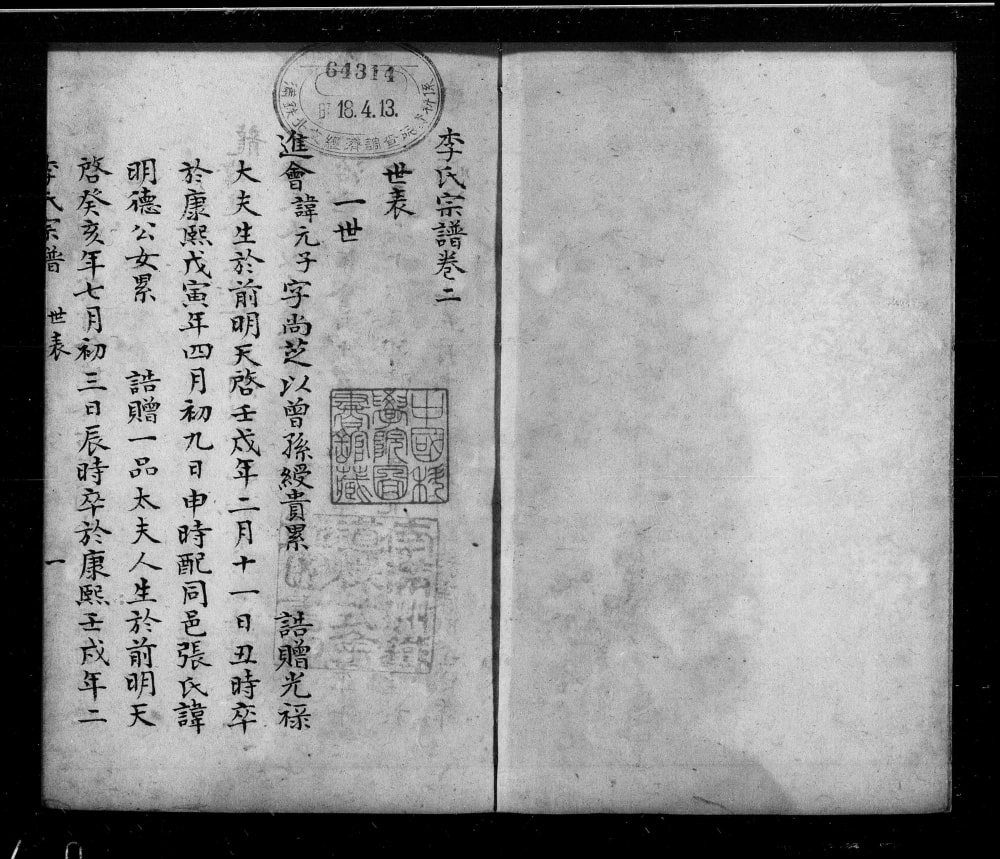 李氏宗譜卷二
世表
一世
進會諱元子字尚芝以曾孫綬貴累 誥贈光祿
大夫生於前明天啓壬戌年二月十一日丑時卒
於康熙戊寅年四月初九日申時配同邑張氏諱
明德公女累 誥贈一品太夫人生於前明天
啓癸亥年七月初三日辰時卒於康熙壬戌年二
李氏宗譜 世表 一
64314
18.4.13.
經濟調查
中國科
學院圖
書館藏